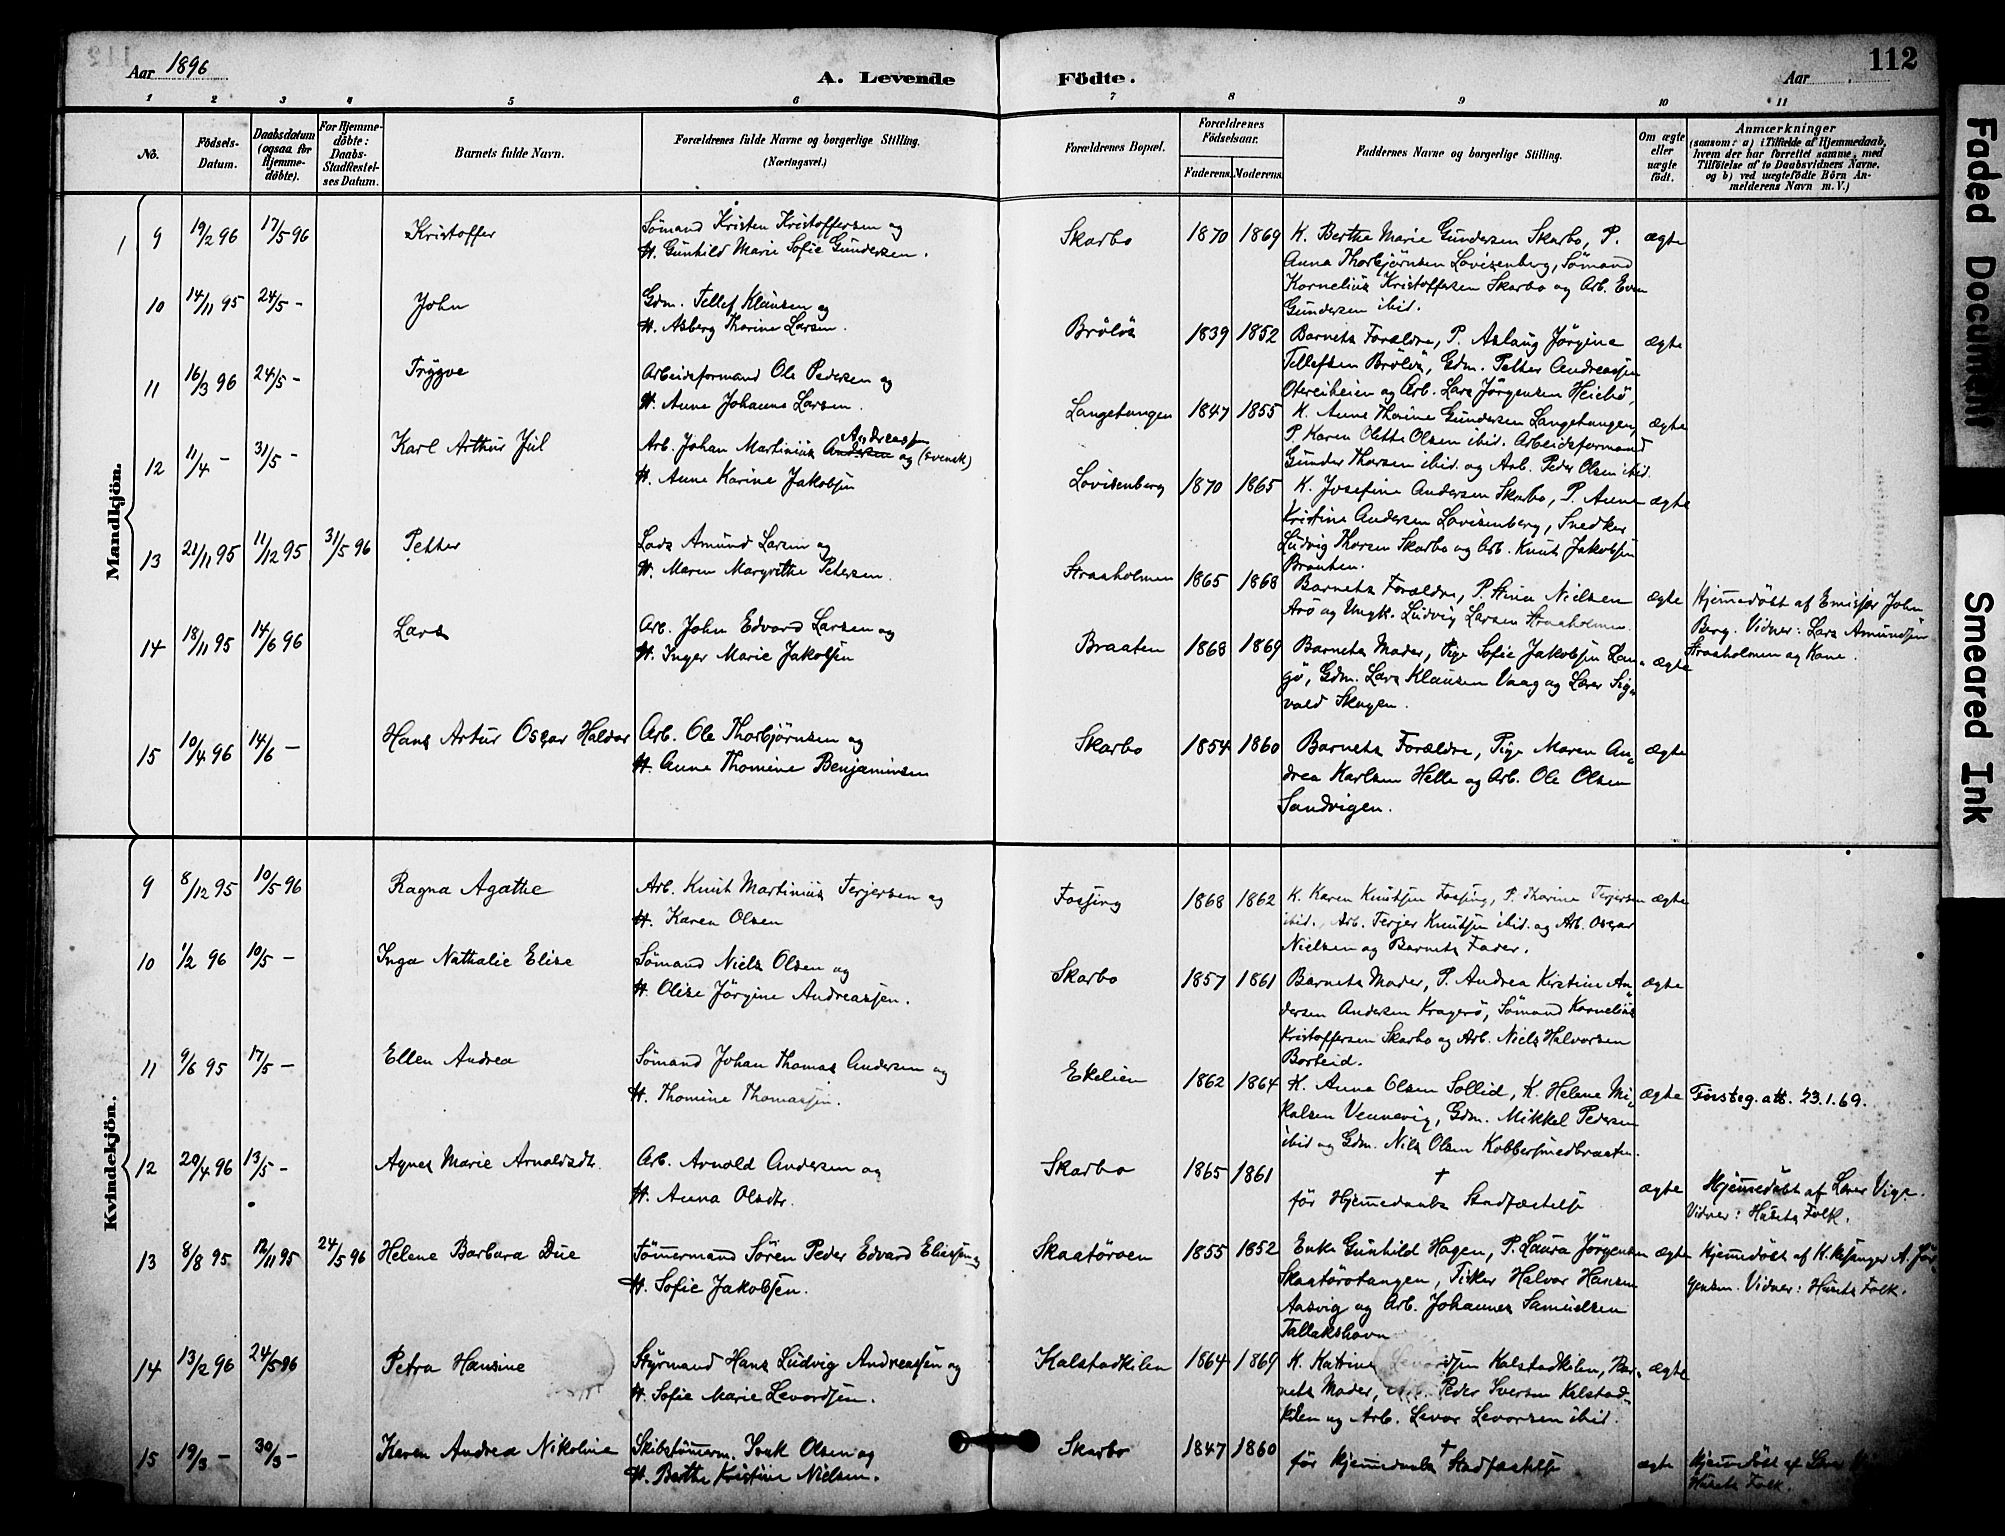 112
Aar 1896
A. Levende
Födte.
Aar
1 2 3 4 5 6 7 8 9 10 11
No.
Födsels-
Datum.
Daabsdatum
(ogsaa for
Hjemme-
döbte).
For Hjemme-
döbte:
Daabs-
Stadfestel-
ses Datum.
Barnets fulde Navn.
Forældrenes fulde Navne og borgerlige Stilling.
(Næringsvei.)
Forældrenes Bopæl.
Forældrenes
Födselsaar.
Faderens. Moderens.
Faddernes Navne og borgerlige Stilling.
Om ægte
eller
uægte
födt.
Anmærkninger
(saasom: a) i Tilfælde af Hjemmedaab,
hvem der har forrettet samme, med
Tilföielse af to Daabsvidners Navne.
og b) ved uægtefödte Börn An-
melderens Navn m. V.)
Mandkjön.
9 19/2 96 17/5 96 Kristoffer
Sømand Kristen Kristoffersen og
H. Gunhild Marie Sofie Gundersen.
Skarbo 1870 1869 ægte
K. Berthe Marie Gundersen Skarbo, P.
Anna Thorbjørnsen Lovisenberg, Sømand
Kornelius Kristoffersen Skarbo og Arb. Even
Gundersen ibid.
10 14/11 95 24/5 - John
Gdm. Tellef Klausen og
H. Asberg Thorine Larsen.
Bröløs 1839 1852 ægte
Barnets Forældre, P. Aslaug Jørgine
Tellefsen Bröløs, Gdm. Petter Andreassen
Otereiheien og Arb. Lars Jørgensen Heibö,
11 16/3 96 24/5 - Tryggve
Arbeidsformand Ole Pedersen og
H. Anne Johanne Larsen.
Langetangen 1847 1855 ægte
K. Anne Thorine Gundersen Langetangen,
P. Karen Olette Olsen ibid. Arbeidsformand
Gunder Thorsen ibid. og Arb. Peder Olsen ibid.
12 11/4 - 31/5 - Karl Arthur Jul
Andreassen
Arb. Johan Martinius Andersen og (svensk)
H. Anne Karine Jakobsen
Lovisenberg 1870 1865 ægte
K. Josefine Andersen Skarbo, P. Anne
Kristine Andersen Lovisenberg, Snedker
Ludvig Thorsen Skarbo og Arb. Knut Jakobsen
Braaten.
13 21/11 95 11/12 95 31/5 96 Petter
Lods Amund Larsen og
H. Maren Margrethe Petersen.
Straaholmen 1865 1868 ægte
Barnets Forældre, P. Stina Nielsen
Arö og Ungk. Ludvig Larsen Straaholmen.
Hjemmedøbt af Emissær John
Berg. Vidner: Lars Amundsen
Straaholmen og Kone.
14 18/11 95 14/6 96 Lars
Arb. John Edvard Larsen og
H. Inger Marie Jakobsen
Braaten 1868 1869 ægte
Barnets Moder, Pige Sofie Jakobsen Lan-
gö, Gdm. Lars Klausen Vaag og Lærer Sig-
vald Skogen.
15 10/4 96 14/6 - Hans Artur Oscar Haldor
Arb. Ole Thorbjørnsen og
H. Anne Thomine Benjaminsen
Skarbo 1854 1860 ægte
Barnets Forældre, Pige Maren An-
drea Karlsen Helle og Arb. Ole Olsen
Sandvigen.
Kvindekjön.
9 8/12 95 10/5 96 Ragna Agathe
Arb. Knut Martinius Terjersen og
H. Karen Olsen
Fossing 1868 1862 ægte
K. Karen Knutsen Fossing, P. Thorine Terjersen
ibid., Arb. Terjer Knutsen ibid. og Arb. Oscar
Nielsen og Barnets Fader.
10 1/2 96 10/5 - Inga Nathalie Elise
Sømand Niels Olsen og
H. Olise Jørgine Andreassen.
Skarbo 1857 1861 ægte
Barnets Moder, P. Andrea Kirstine An-
dersen Andersen Kragerö, Sømand Kornelius
Kristoffersen Skarbo og Arb. Niels Halvorsen
Borteid.
11 9/6 95 17/5 - Ellen Andrea
Sømand Johan Thomas Andersen og
H. Thomine Thomassen.
Ekelien 1862 1864 ægte
K. Anne Olsen Sollid, K. Helene Mi-
kalsen Vennevig, Gdm. Mikkel Pedersen
ibid og Gdm. Nils Olsen Kobbersmedbraaten.
Førsteg. att. 23.1.69.
12 20/4 96 13/5 - Agnes Marie Arnoldsdtr.
Arb. Arnold Andersen og
H. Anna Olsdtr.
Skarbo 1865 1861 ægte
†
før Hjemmedaabs Stadfæstelse
Hjemmedøbt af Lærer Vige.
Vidner: Husets Folk.
13 8/8 95 12/11 95 24/5 96 Helene Barbara Due
Tömmermand Sören Peder Edvard Eliassen og
H. Sofie Jakobsen.
Skaatöroen 1855 1852 ægte
Enke Gunhild Hagen, P. Laura Jørgensen
Skaatörotangen, Fisker Halvor Hansen
Aasvig og Arb. Johannes Samuelsen
Tallakshavn
Hjemmedøbt af K.kesanger A. Jør-
gensen. Vidner: Husets Folk.
14 13/2 96 24/5 96 Petra Hansine
Styrmand Hans Ludvig Andreassen og
H. Sofie Marie Levordsen.
Kalstadkilen 1864 1869 ægte
K. Katrine Levordsen Kalstadkilen, Bar-
nets Moder, Arb. Peder Iversen Kalstad-
kilen og Arb. Levor Levorsen ibid.
15 19/3 - 30/3 - Karen Andrea Nikoline
Skibstømmerm. Isak Olsen og
H. Berthe Kristine Nielsen.
Skarbo 1847 1860 ægte
†
før Hjemmedaabs Stadfæstelse
Hjemmedøbt af Lærer
Husets Folk.
Faded Document
Smeared Ink